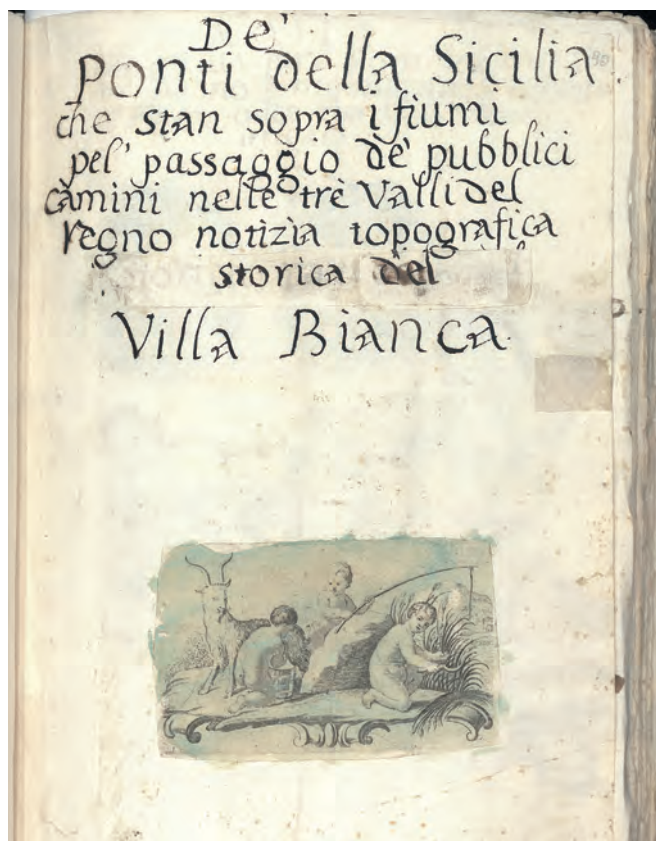 De'
Ponti della Sicilia
che stan sopra i fiumi
pel' passaggio de' pubblici
camini nelle trè Valli del
regno notizia topografica
storica del
Villa Bianca.